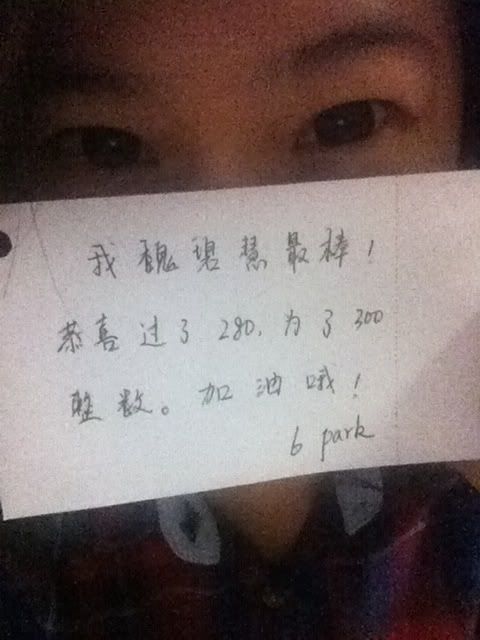 我魏碧慧最棒！
恭喜过了280,为了300
整数。加油哦！
6 park